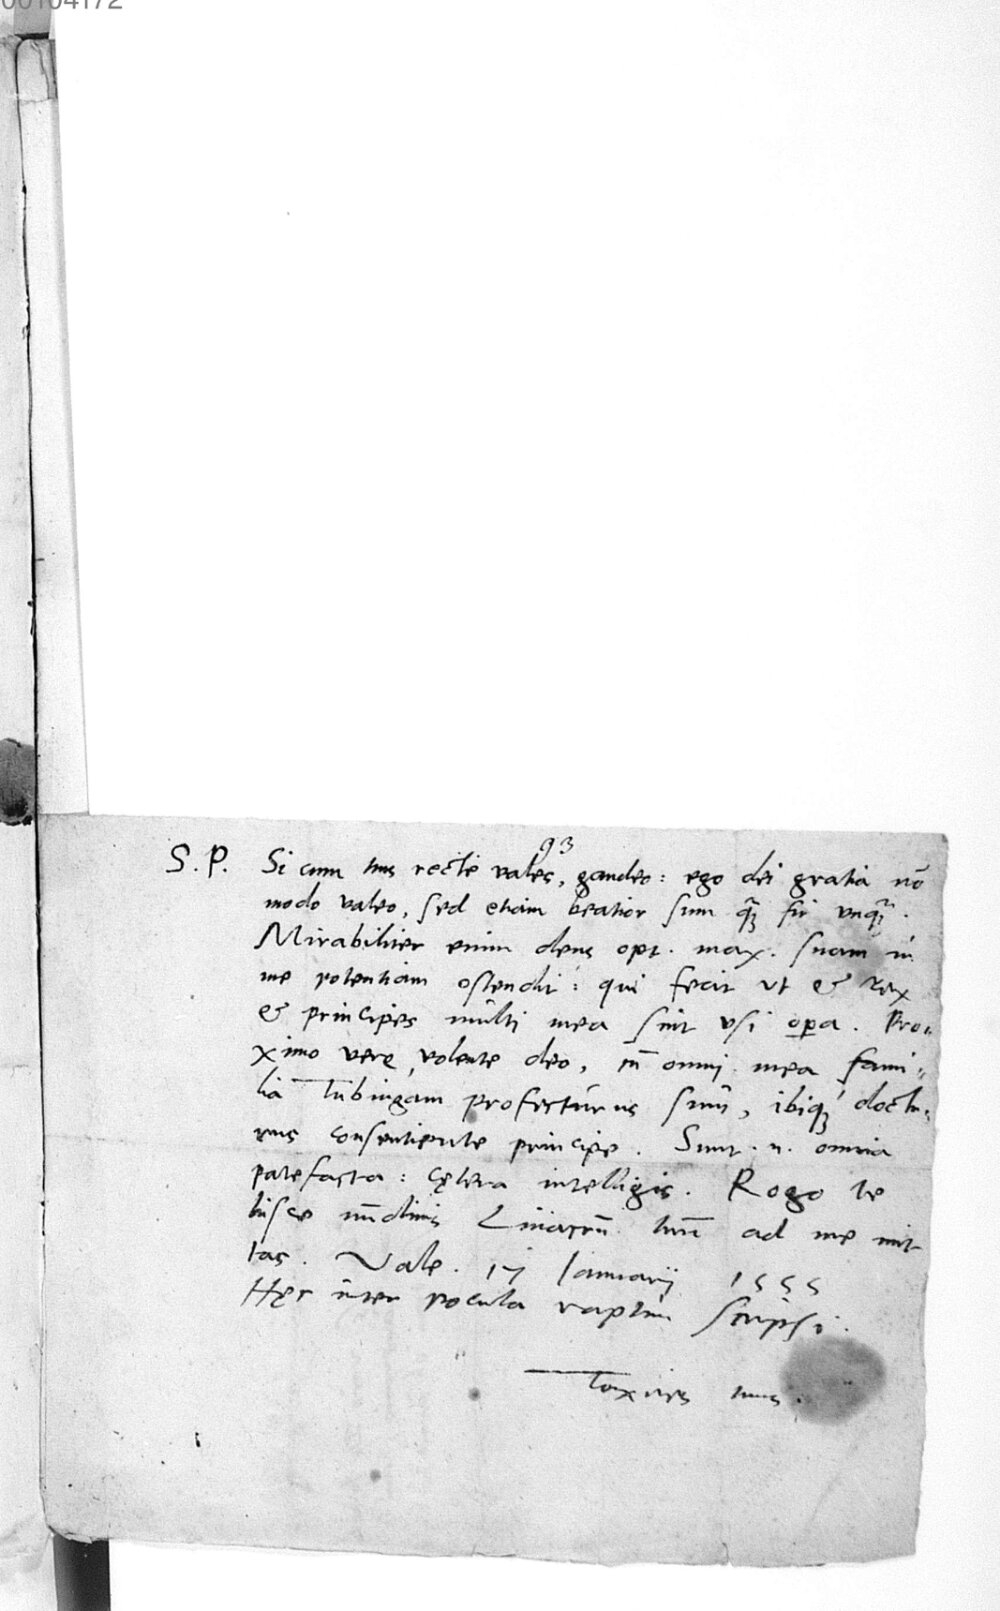 00104172
93
S. P. Si cum tuis recte vales, gaudeo: ego dei gratia nō
modo valeo, sed etiam beatior sum quā fui vnquā.
Mirabiliter enim deus opt. max. suam in
me potentiam ostendit: qui fecit vt & rex
& principes multi mea sint vsi opera. Pro-
ximo vere, volente deo, cū omni mea fami-
lia Tubingam profecturus sum, ibique doctu-
rus consentiente principe. Sunt .n. omnia
patefacta: cętera intelligis. Rogo te
hisce nūdinis ad me mit
tas. Vale. 17 Ianuarij 1555
Hęc inter pocula raptim scripsi.
Toxites tuus.